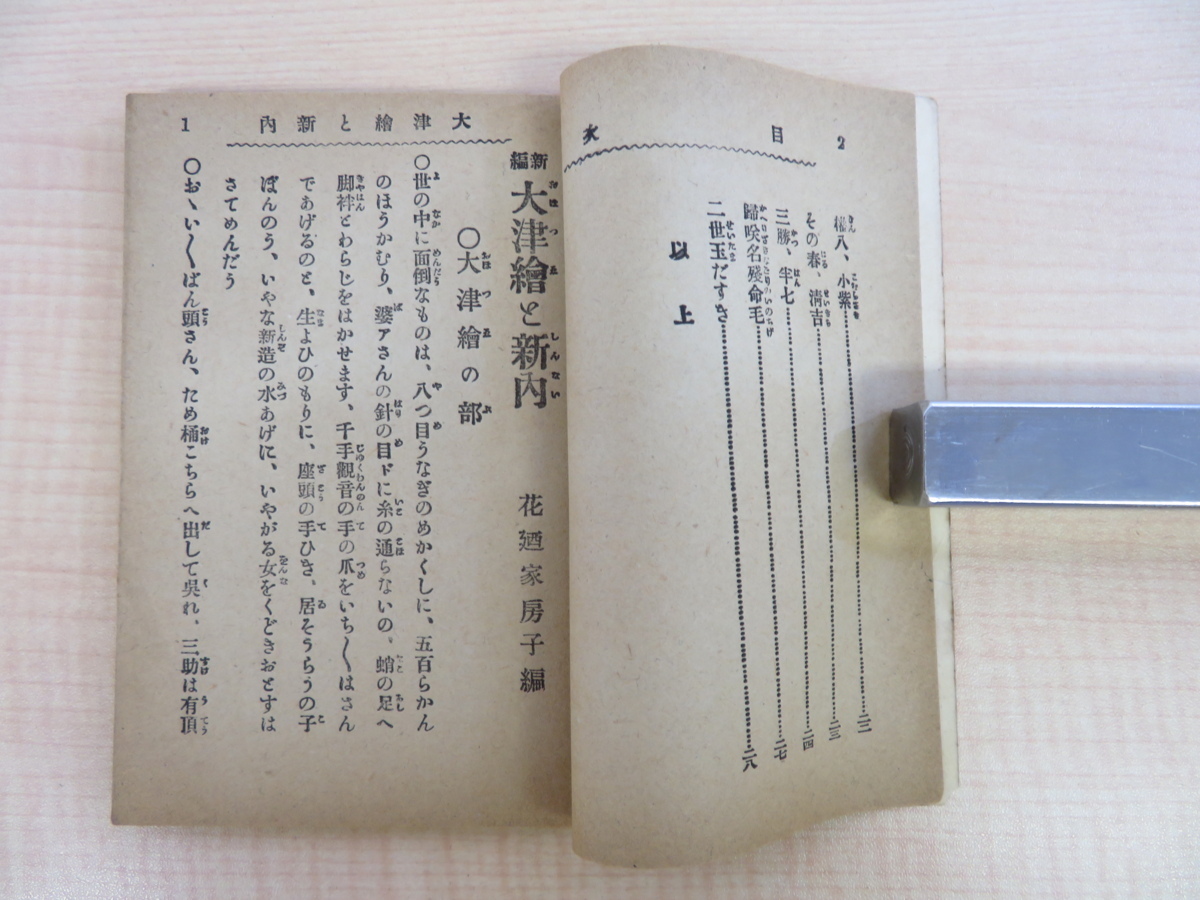 2
目次
權八、小紫……二二
その春、淸吉……二三
三勝、半七……二四
歸咲名殘命毛……二七
二世玉だすき……二八
以上
大津繪と新內
1
新編 大津繪と新內
花廼家房子編
〇大津繪の部
〇世の中に面倒なものは、八つ目うなぎのめかくしに、五百らかん
のほうかむり、婆アさんの針の目ドに糸の通らないの、蛸の足へ
脚袢とわらじをはかせます、千手觀音の手の爪をいち〱はさん
であげるのと、生よひのもりに、座頭の手ひき、居そうらうの子
ぼんのう、いやな新造の水あげに、いやがる女をくどきおとすは
さてめんだう
〇おゝい〱ばん頭さん、ため桶こちらへ出して吳れ、三助は有頂